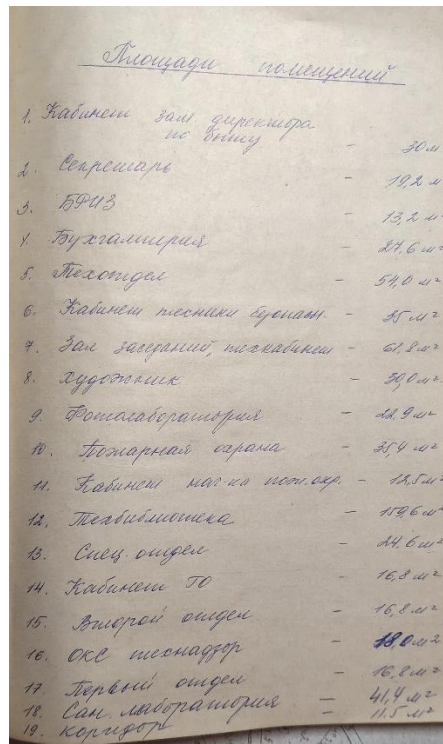 Площади помещений
1. Кабинет зам. директора
по быту - 30 м
2. Секретарь - 19,2 м
3. БРИЗ - 13,2 м²
4. Бухгалтерия - 27,6 м²
5. Техотдел - 54,0 м²
6. Кабинет техники безопасн. - 35 м²
7. Зал заседаний, техкабинет - 61,8 м²
8. Художник - 30,0 м²
9. Фотолаборатория - 22,9 м²
10. Пожарная охрана - 35,4 м²
11. Кабинет нач-ка пож. охр. - 12,5 м²
12. Техбиблиотека - 159,6 м²
13. Спец. отдел - 24,6 м²
14. Кабинет ГО - 16,8 м²
15. Второй отдел - 16,8 м²
16. ОКС технадзор - 18,0 м²
17. Первый отдел - 16,8 м²
18. Сан. лаборатория - 41,4 м²
19. Коридор - 11,5 м²